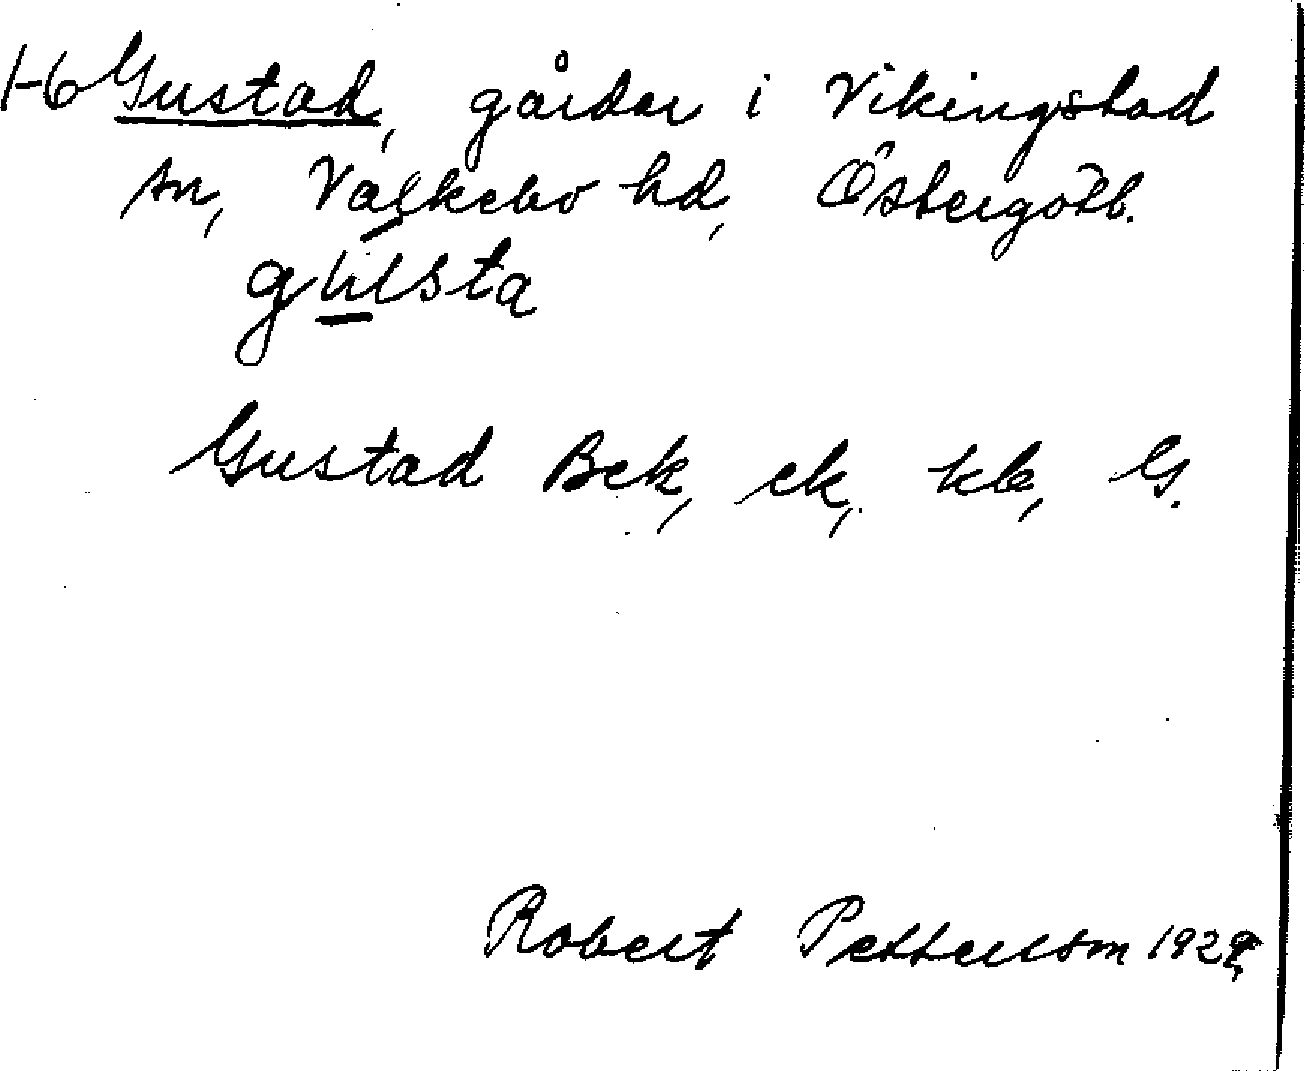 1-6 Gustad, gårdar i Vikingstad
sn, Valkebo hd, Östergötl.
Gustad Bek, ek, kb, G.
Robert Pettersson 1929